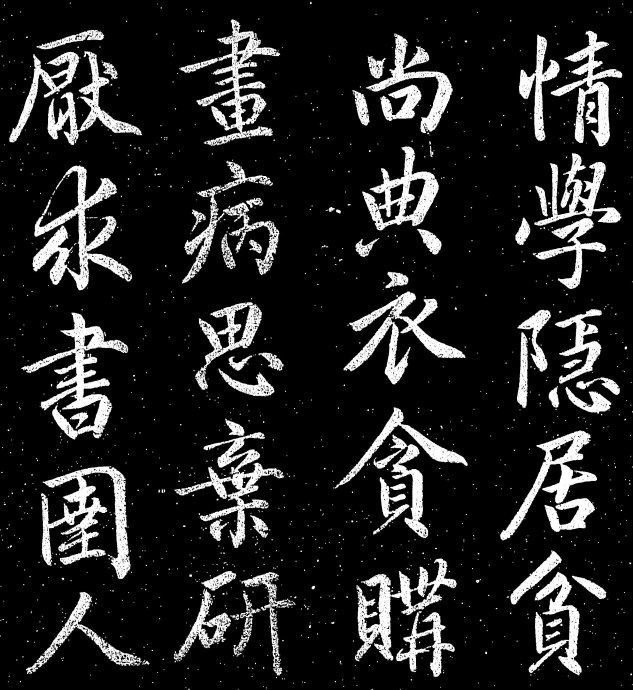 情學隱居貧
尚典衣貧購
畫病思棄研
厭求書圍人